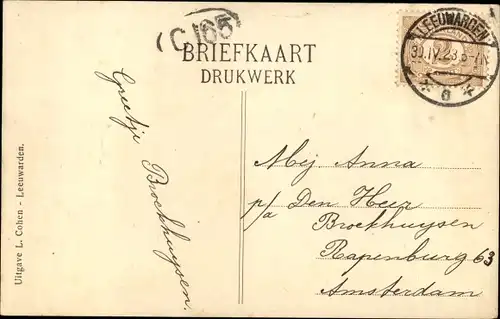 (C 165
BRIEFKAART
DRUKWERK
LEEUWARDEN
30.IV.23.5-7N
Greetje Broekhuysen.
Mej Anna
p/a Den Heer
Broekhuysen
Rapenburg 63
Amsterdam
Uitgave L. Cohen - Leeuwarden.